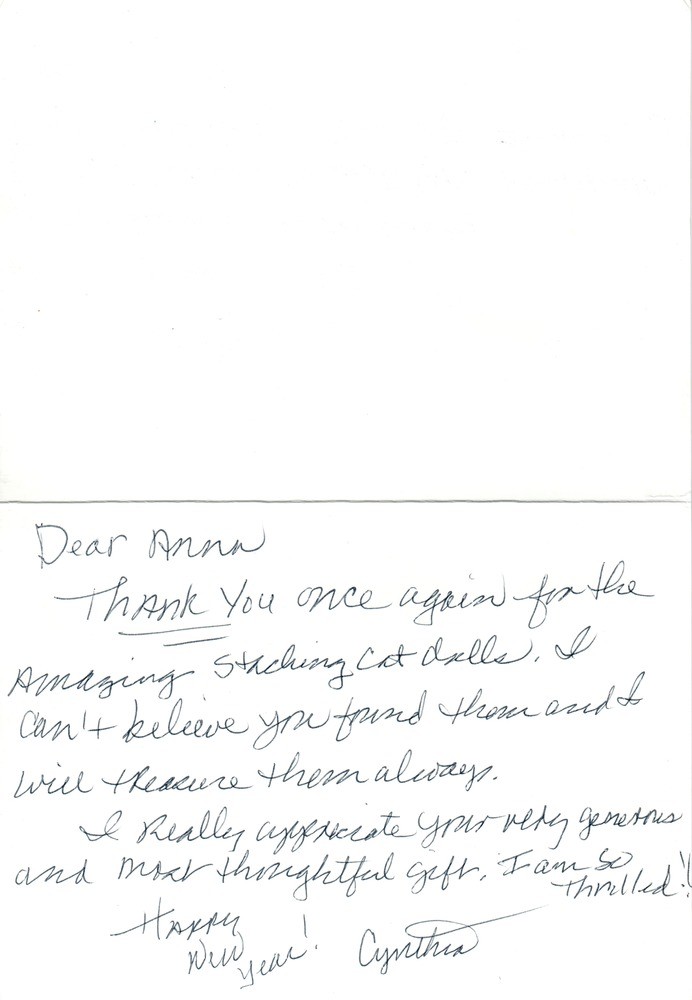 Dear Anna
Thank You once again for the
Amazing Stacking Cat dolls. I
Can't believe you found them and I
will treasure them always.
I Really appreciate your very generous
and most thoughtful gift. I am So
Thrilled!!
Happy
New
Year!
Cynthia